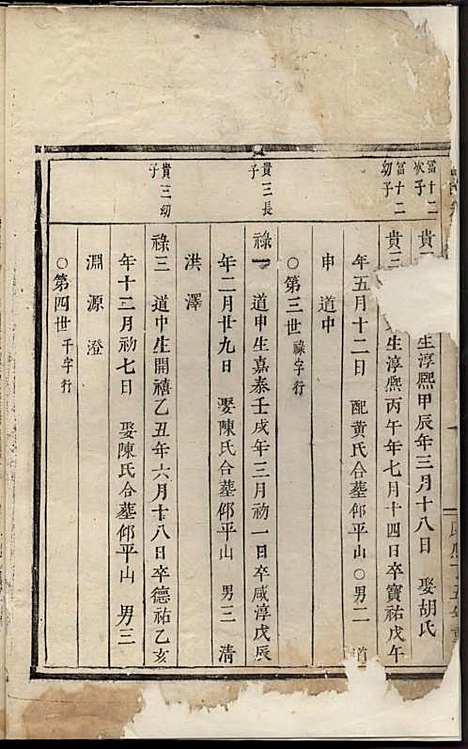 富十二次子
貴
生淳熙甲辰年三月十八日　娶胡氏
富十二幼子
貴三
生淳熙丙午年七月十四日卒寶祐戊午
年五月十二日　配黃氏合墓邻平山○男二　道
申道中
○第三世祿字行
貴三長子
祿一　道申生嘉泰壬戌年三月初一日卒咸淳戊辰
年二月廿九日　娶陳氏合墓邻平山　男三　清
洪澤
貴三幼子
祿三　道中生開禧乙丑年六月十八日卒德祐乙亥
年十二月初七日　娶陳氏合墓邻平山　男三
淵源澄
○第四世千字行